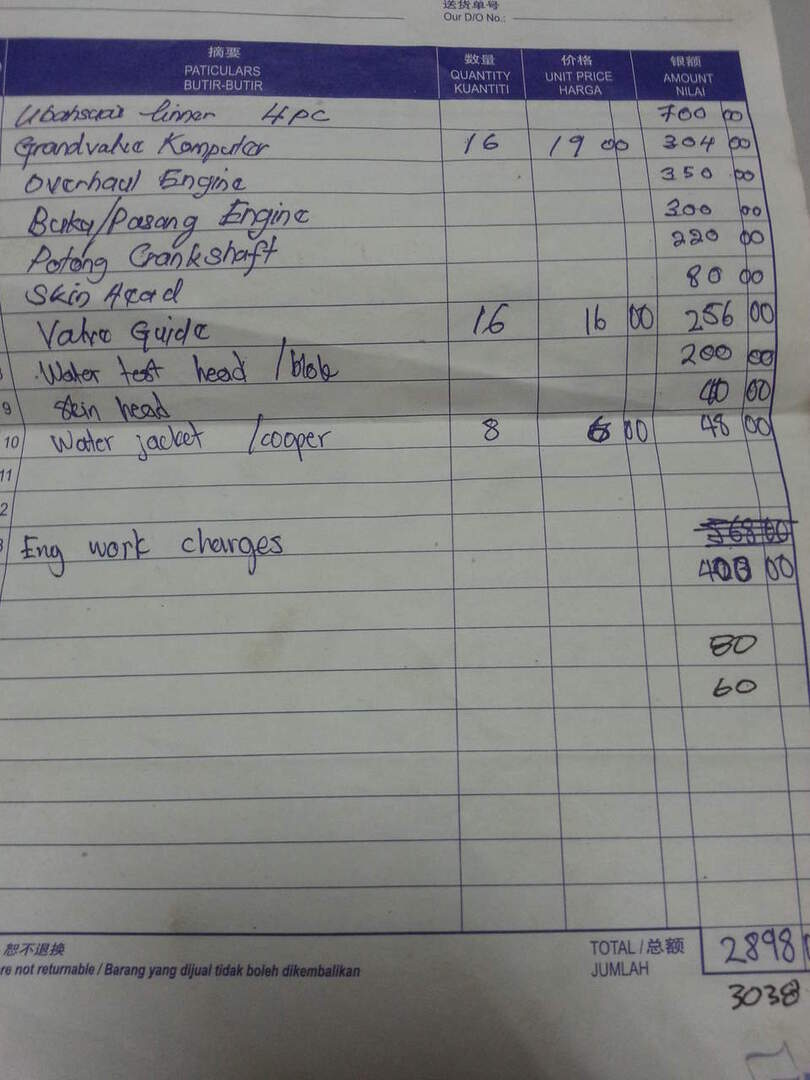 送货单号
Our D/O No.:
摘要 数量 价格 银额
PATICULARS QUANTITY UNIT PRICE AMOUNT
BUTIR-BUTIR KUANTITI HARGA NILAI
linner 4pc 700 00
Grandvalve Komputer 16 19 00 304 00
Overhaul Engine 350 00
Buka/Pasang Engine 300 00
Potong Crankshaft 220 00
Skin Head 80 00
Valve Guide 16 16 00 256 00
Water test head /blok 200 00
9 Skin head 40 00
10 Water jacket /cooper 8 6 00 48 00
11
2
3 Eng work charges 568 00
400 00
80
60
恕不退换 TOTAL / 总额 2898 0
re not returnable / Barang yang dijual tidak boleh dikembalikan JUMLAH
3038